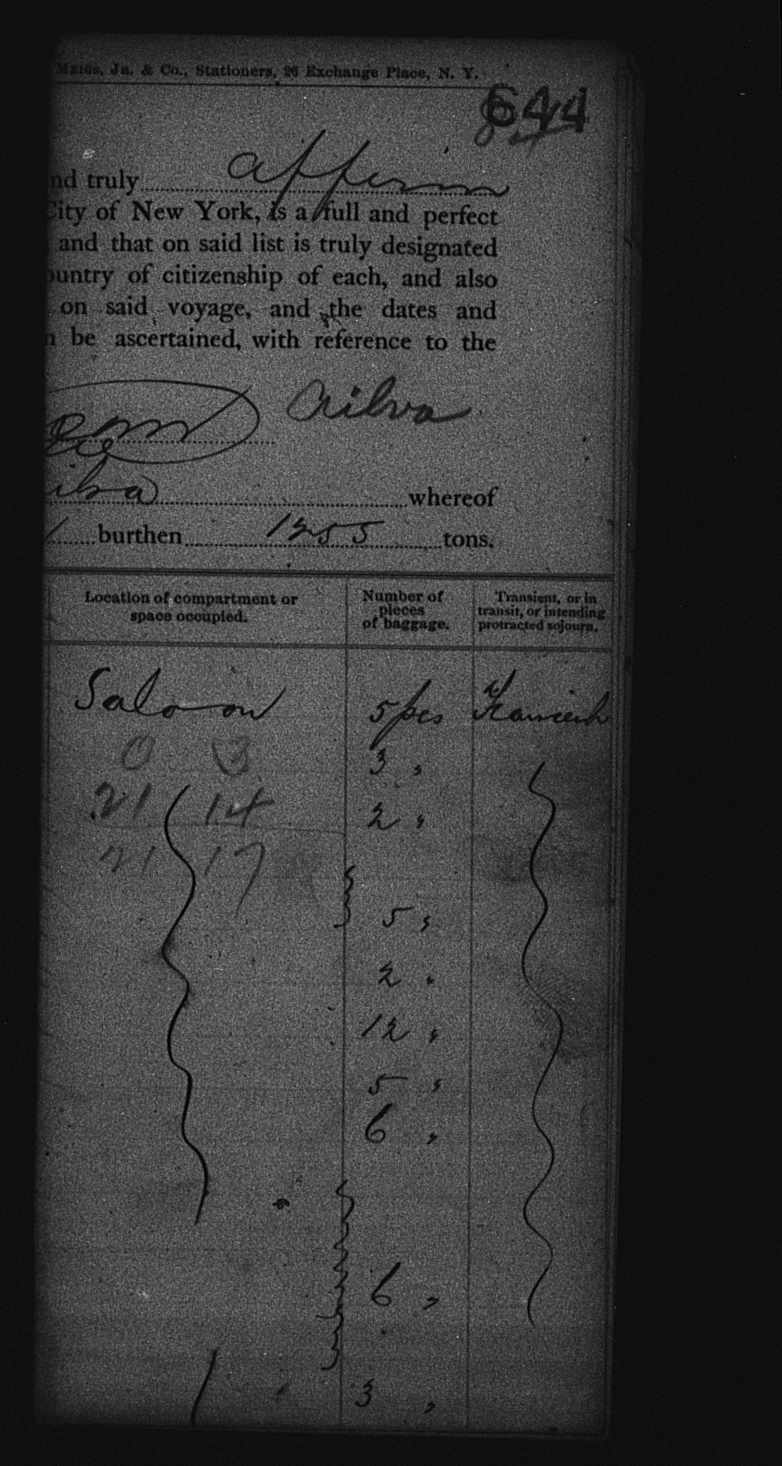 Jr. & Co., Stationers, 26 Exchange Place, N. Y.
644
nd truly affirm
City of New York, is a full and perfect
and that on said list is truly designated
ountry of citizenship of each, and also
on said voyage, and the dates and
n be ascertained, with reference to the
Ailva
ilsa whereof
burthen 1255 tons.
Location of compartment or space occupied.
Number of pieces of baggage.
Transient, or in transit, or intending protracted sojourn.
Saloon 5 pcs Transient
0 3 3 "
21 14 2 "
21 17
5 "
2 "
12 "
5 "
6 "
6 "
3 "